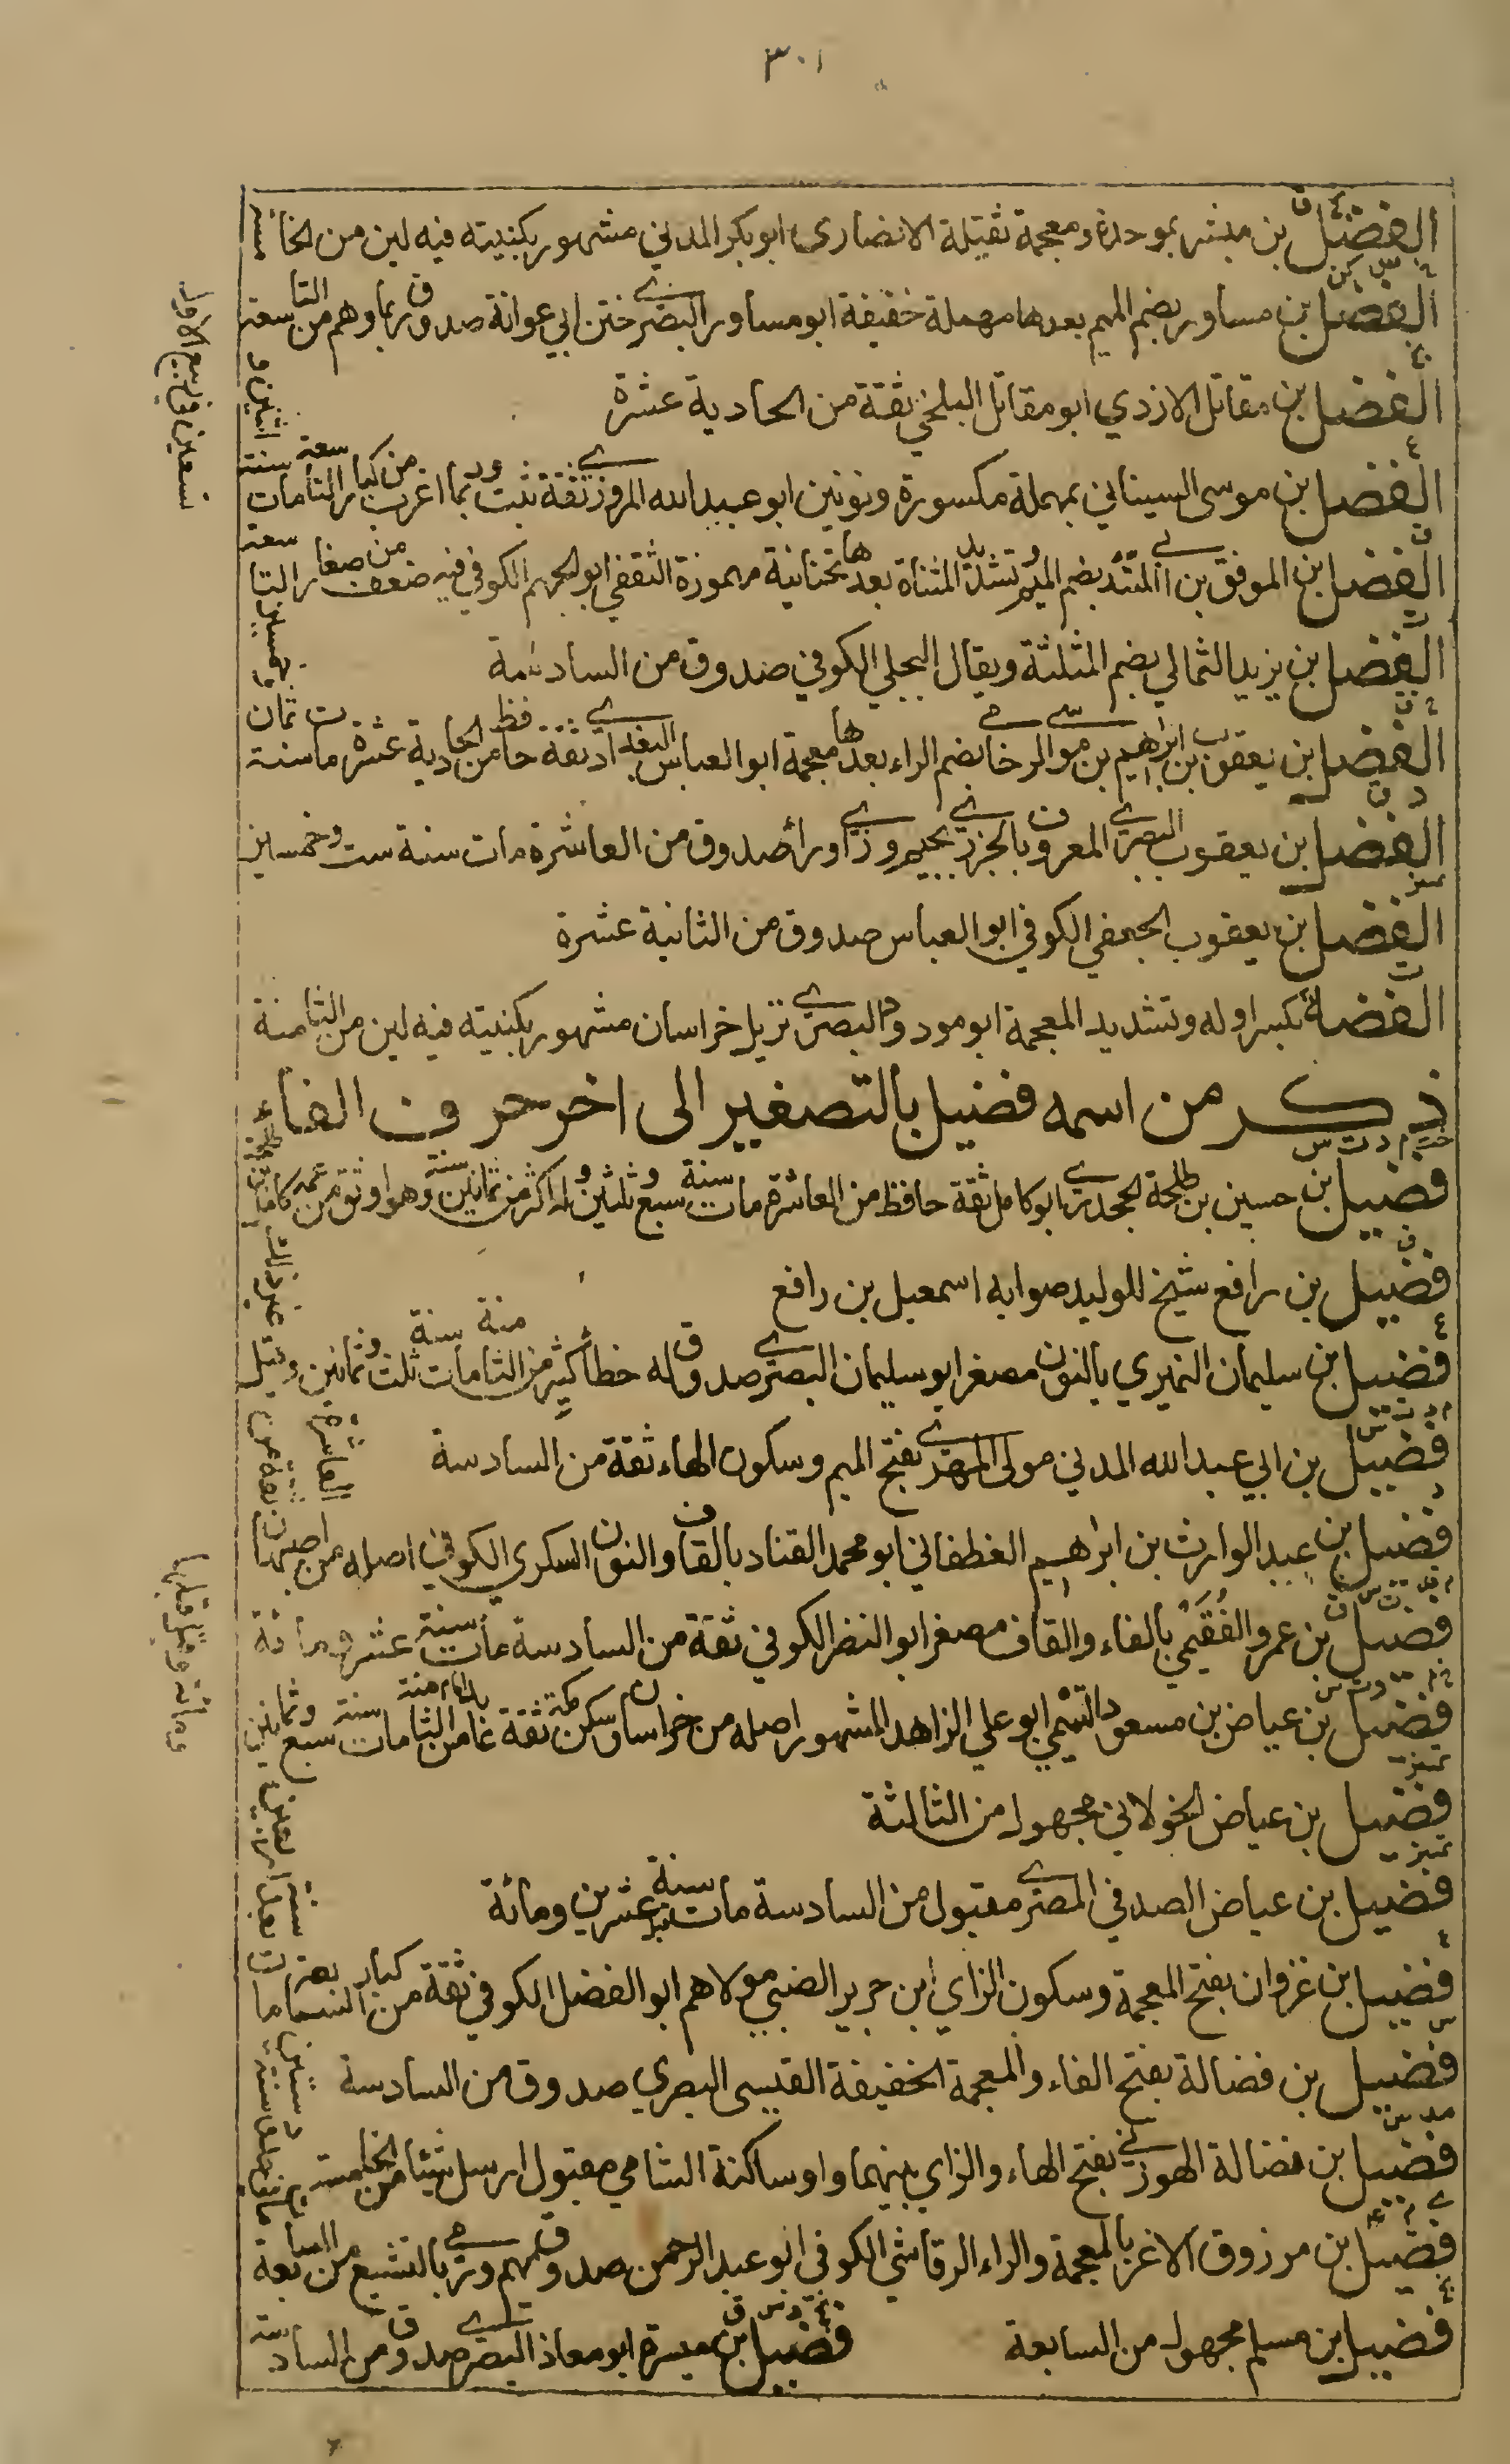 ٣٠١
الفضل بن مبشر بموحدة ومعجمة ثقيلة الانصاري ابو بكر المدني مشهور بكنيته فيه لين من الخامسة
الفضل بن مساور بضم الميم بعدها مهملة خفيفة ابو مساور البصري ختن ابي عوانة صدوق ربما وهم من التاسعة
الفضل بن مقاتل الازدي ابو مقاتل البلخي ثقة من الحادية عشرة
الفضل بن موسى السيناني بمهملة مكسورة ونونين ابو عبدالله المروزي ثقة ثبت وربما اغرب من كبار التاسعة مات سنة اثنين وتسعين في ربيع الاول
الفضل بن الموفق بن ابي المتئد بضم الميم وتشديد المثناة بعدها تحتانية مهموزة الثقفي ابو الجهم الكوفي فيه ضعف من صغار التاسعة
الفضل بن يزيد الثمالي بضم المثلثة ويقال البجلي الكوفي صدوق من السادسة
الفضل بن يعقوب بن ابراهيم بن موسى الرخامي بضم الراء بعدها معجمة ابو العباس البغدادي ثقة حافظ من الحادية عشرة مات سنة ثمان وخمسين
الفضل بن يعقوب البصري المعروف بالجزري بجيم وزاي وراء صدوق من العاشرة مات سنة ست وخمسين
الفضل بن يعقوب الجعفي الكوفي ابو العباس صدوق من الثانية عشرة
الفضة بكسر اوله وتشديد المعجمة ابو مودود البصري نزيل خراسان مشهور بكنيته فيه لين من الثامنة
ذكر من اسمه فضيل بالتصغير الى اخر حرف الفاء
فضيل بن حسين بن طلحة الجحدري ابو كامل ثقة حافظ من العاشرة مات سنة سبع وثلثين وله اكثر من ثمانين سنة وهو اوثق من عمه كامل بن طلحة
فضيل بن رافع شيخ للوليد صوابه اسمعيل بن رافع
فضيل بن سليمان النميري بالنون مصغر ابو سليمان البصري صدوق له خطأ كثير من الثامنة مات سنة ثلث وثمانين وقيل غير ذلك
فضيل بن ابي عبدالله المدني مولى المهري بفتح الميم وسكون الهاء ثقة من السادسة
فضيل بن عبد الوارث بن ابراهيم الغطفاني ابو محمد القناد بالقاف والنون السكري الكوفي اصله من اصبهان ثقة من العاشرة
فضيل بن عمرو الفُقَيْمي بالفاء والقاف مصغر ابو النضر الكوفي ثقة من السادسة مات سنة عشر ومائة
فضيل بن عياض بن مسعود التميمي ابو علي الزاهد المشهور اصله من خراسان وسكن مكة ثقة عابد امام من الثامنة مات سنة سبع وثمانين ومائة وقيل قبلها
فضيل بن عياض الخولاني مجهول من الثالثة
فضيل بن عياض الصدفي المصري مقبول من السادسة مات سنة عشرين ومائة
فضيل بن غزوان بفتح المعجمة وسكون الزاي ابن جرير الضبي مولاهم ابو الفضل الكوفي ثقة من كبار السابعة مات بعد سنة اربعين
فضيل بن فضالة بفتح الفاء والمعجمة الخفيفة القيسي البصري صدوق من السادسة
فضيل بن فضالة الهوزني بفتح الهاء والزاي بينهما واو ساكنة الشامي مقبول ارسل شيئا من الخامسة
فضيل بن مرزوق الاغر بالمعجمة والراء الرقاشي الكوفي ابو عبد الرحمن صدوق يهم ورمي بالتشيع من السابعة
فضيل بن مسلم مجهول من السابعة
فضيل بن ميسرة ابو معاذ البصري صدوق من السادسة